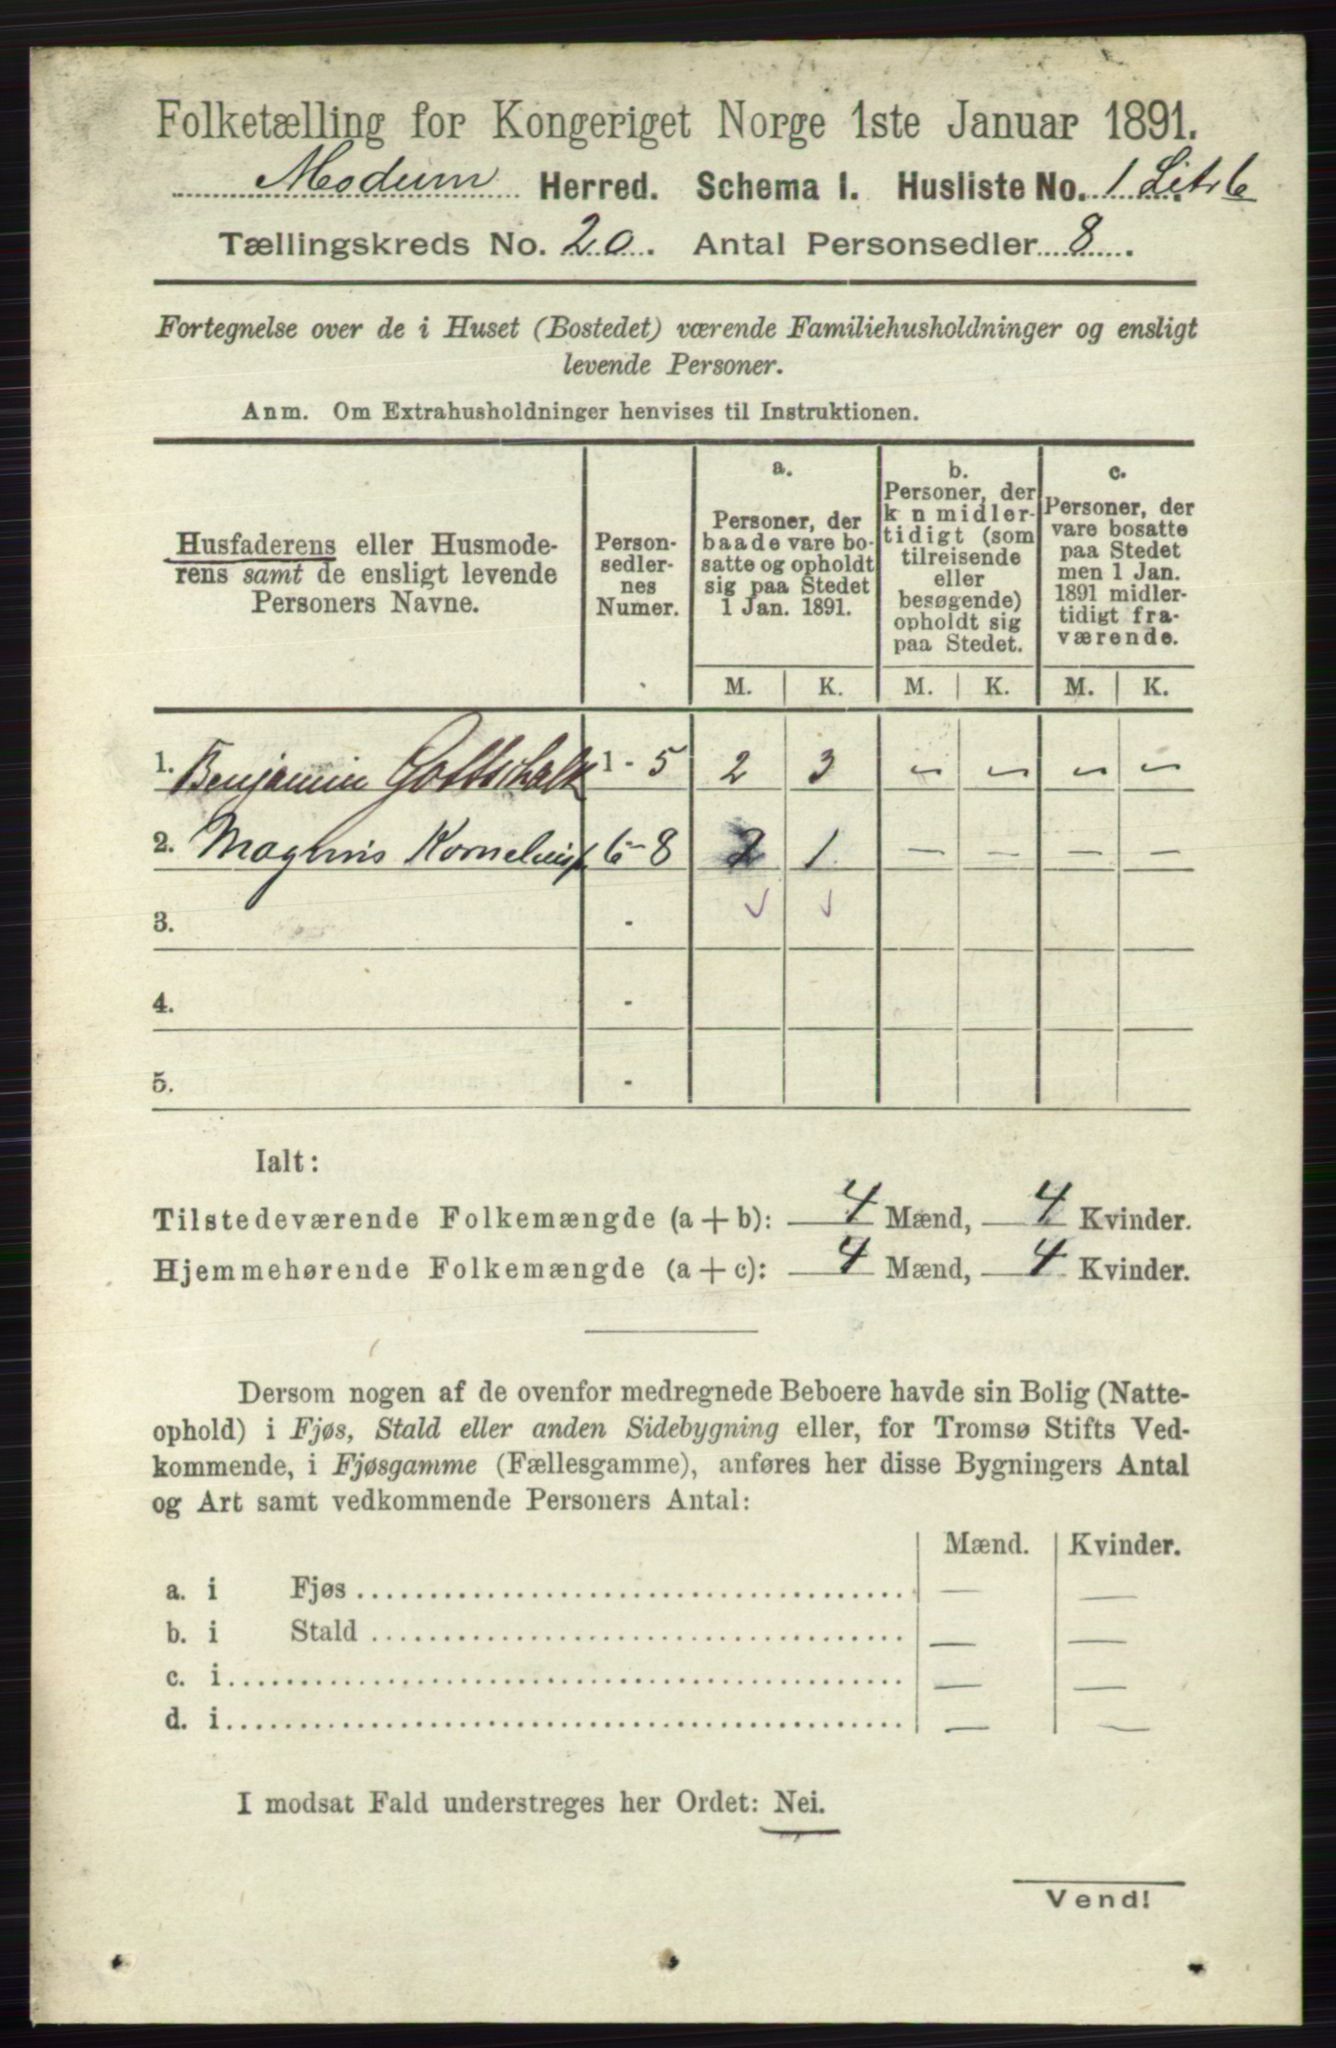 Folketælling for Kongeriget Norge 1ste Januar 1891.
Modum Herred. Schema I. Husliste No. 1 Litr b
Tællingskreds No. 20. Antal Personsedler 8.
Fortegnelse over de i Huset (Bostedet) værende Familiehusholdninger og ensligt
levende Personer.
Anm. Om Extrahusholdninger henvises til Instruktionen.
Husfaderens eller Husmode-
rens samt de ensligt levende
Personers Navne.
Person-
sedler-
nes
Numer.
a.
Personer, der
baade vare bo-
satte og opholdt
sig paa Stedet
1 Jan. 1891.
b.
Personer, der
k n midler-
tidigt (som
tilreisende
eller
besøgende)
opholdt sig
paa Stedet.
c.
Personer, der
vare bosatte
paa Stedet
men 1 Jan.
1891 midler-
tidigt fra-
værende.
M. K. M. K. M. K.
1. Benjamin Gottschalk 1 - 5 2 3 — — — —
2. Magnus 6 - 8 2 1 — — — —
3. -
4. -
5. -
Ialt:
Tilstedeværende Folkemængde (a + b): 4 Mænd, 4 Kvinder.
Hjemmehørende Folkemængde (a + c): 4 Mænd, 4 Kvinder.
Dersom nogen af de ovenfor medregnede Beboere havde sin Bolig (Natte-
ophold) i Fjøs, Stald eller anden Sidebygning eller, for Tromsø Stifts Ved-
kommende, i Fjøsgamme (Fællesgamme), anføres her disse Bygningers Antal
og Art samt vedkommende Personers Antal:
Mænd. Kvinder.
a. i Fjøs — —
b. i Stald — —
c. i — —
d. i — —
I modsat Fald understreges her Ordet: Nei.
Vend!